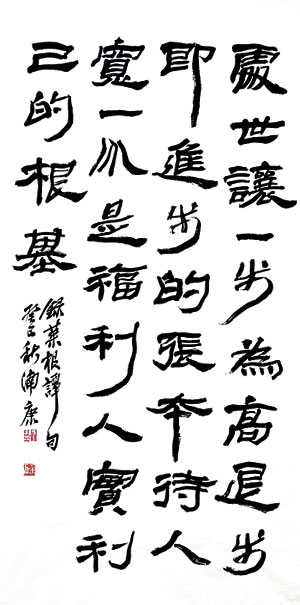 處世讓一步為高退步
即進步的張本待人
寬一分是福利人實利
己的根基
錄菜根譚句
癸巳秋浦康